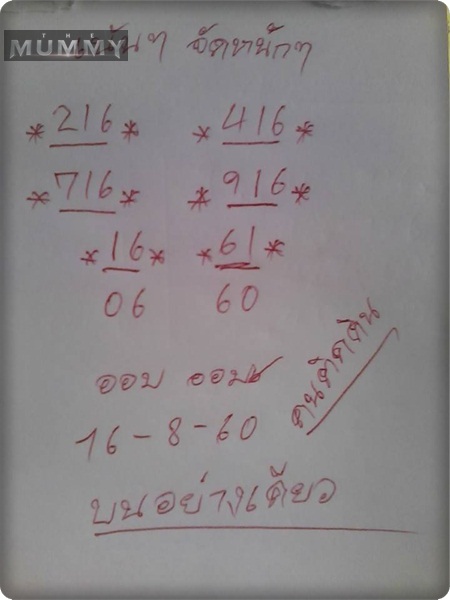 THE MUMMY
เน้นๆ จัดหนักๆ
*216* *416*
*716* *916*
*16* *61*
06 60
คนติดดิน
ออม ออม
16-8-60
บนอย่างเดียว